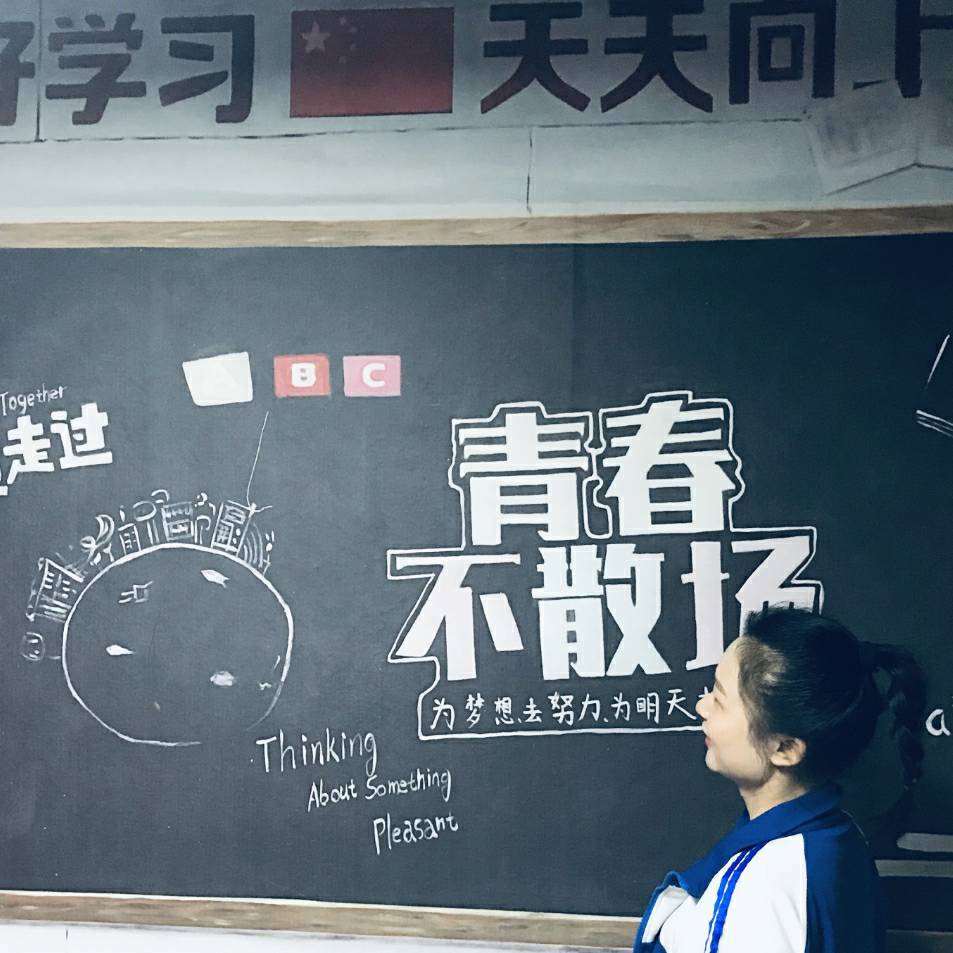 好学习 天天向上
A B C
Together
走过
青春
不散场
为梦想去努力、为明天
Thinking
About Something
Pleasant
a